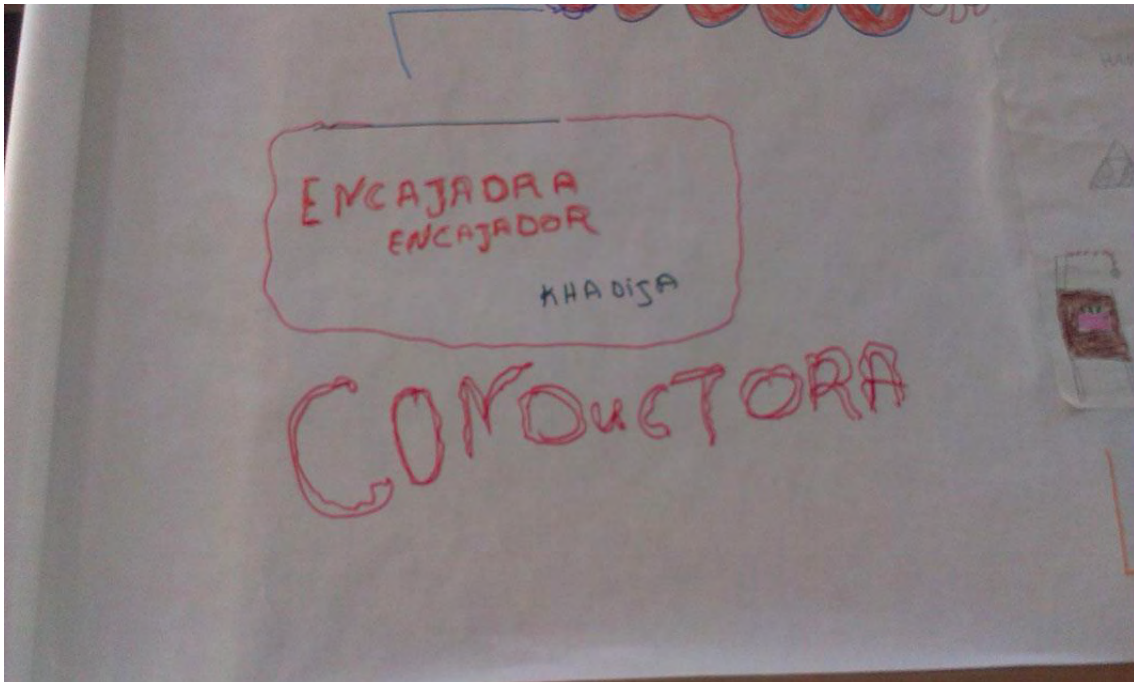 ENCAJADRA
ENCAJADOR
KHADIJA
CONDUCTORA